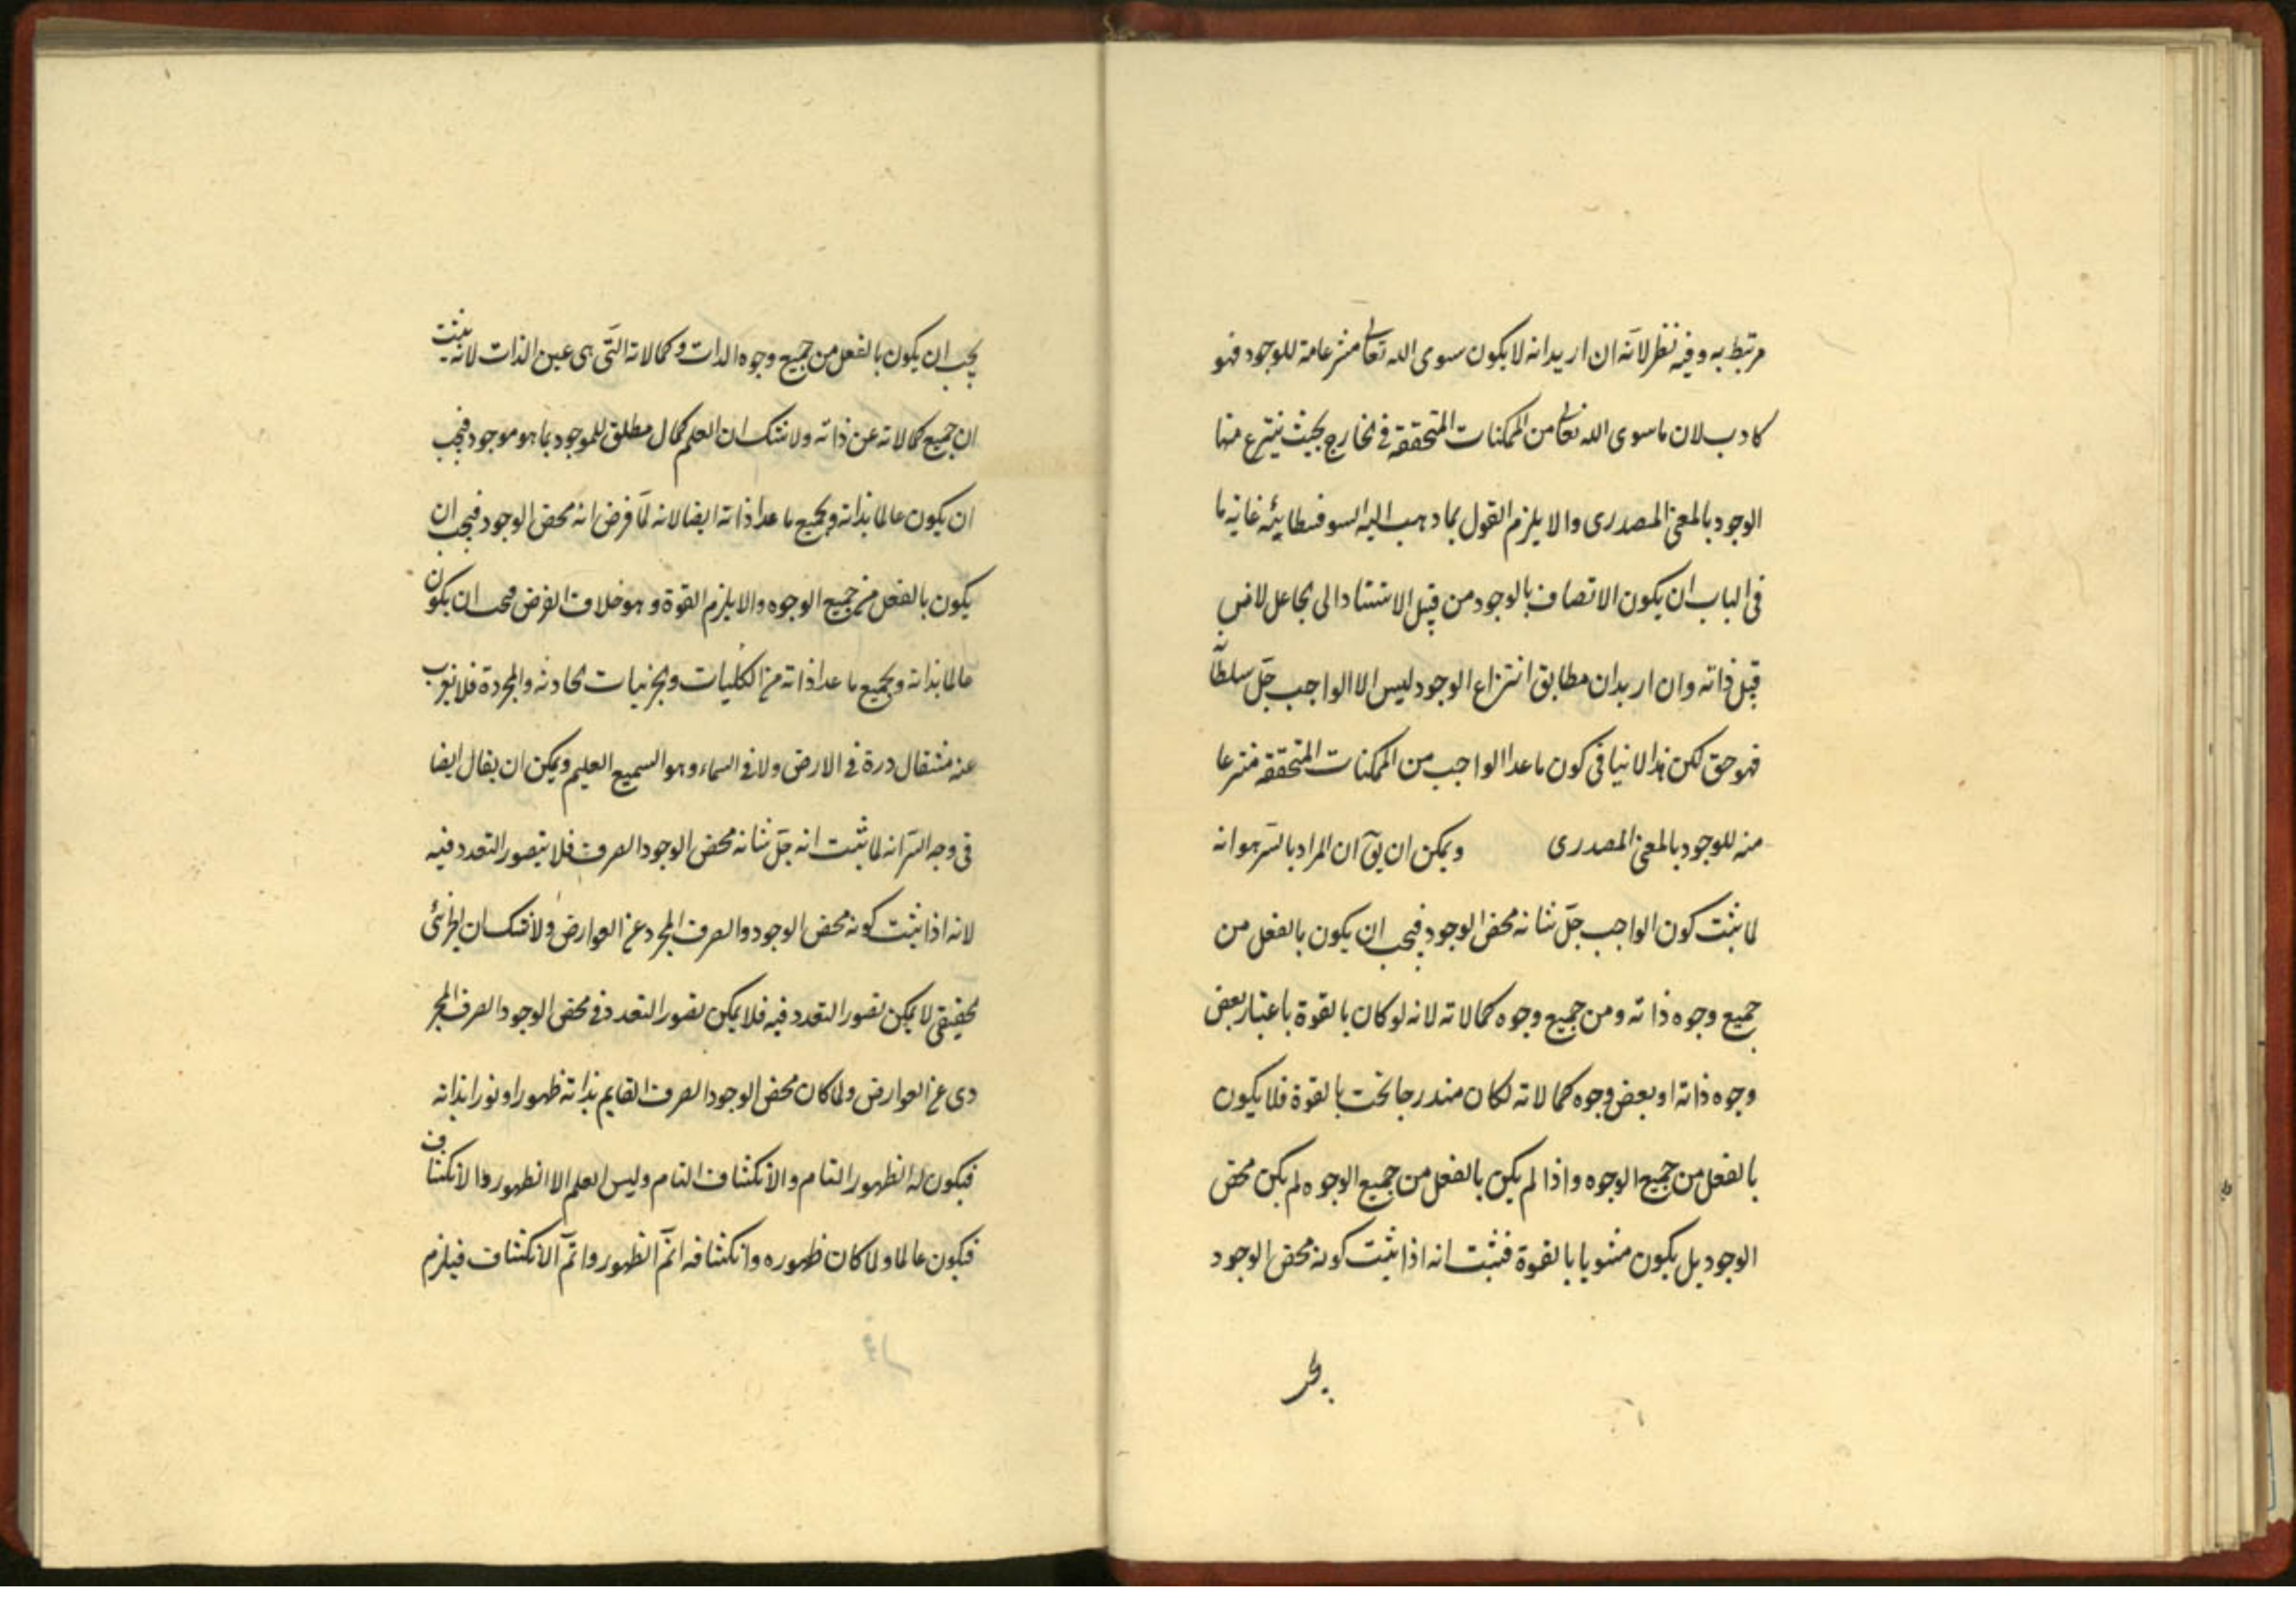 مرتبط به وفيه نظر لانّه ان اريد انه لا يكون سوى الله تعالى منتزعا منه للوجود فهو
كاذب لان ما سوى الله تعالى من الممكنات المتحققة فى الخارج بحيث ينتزع منها
الوجود بالمعنى المصدرى والا يلزم القول بما ذهب اليه السوفسطائيّه غاية ما
فى الباب ان يكون الاتصاف بالوجود من قبل الاستناد الى الجاعل لا من
قبل ذاته وان اريد ان مطابق انتزاع الوجود ليس الا الواجب جلّ سلطانه
فهو حق لكن هذا لا ينافى كون ما عدا الواجب من الممكنات المتحققه منتزعا
منه للوجود بالمعنى المصدرى ويمكن ان يقٓ ان المراد بالسّر هو انه
لما ثبت كون الواجب جلّ شانه محض الوجود فيجب ان يكون بالفعل من
جميع وجوه ذاته ومن جميع وجوه كمالاته لانه لو كان بالقوة باعتبار بعض
وجوه ذاته او بعض وجوه كمالاته لكان مندرجا تحت بالقوة فلا يكون
بالفعل من جميع الوجوه واذا لم يكن بالفعل من جميع الوجوه لم يكن محض
الوجود بل يكون مشوبا بالقوة فثبت انه اذا ثبت كونه محض الوجود
يجب ان يكون بالفعل من جميع وجوه الذات وكمالاته التّى هى عين الذات لانه يثبت
ان جميع كمالاته عن ذاته ولا شك ان العلم كمال مطلق للموجود بما هو موجود فيجب
ان يكون عالما بذاته وبجميع ما عدا ذاته ايضا لانه لمّا فرض انه محض الوجود فيجب ان
يكون بالفعل من جميع الوجوه والا يلزم القوة وهو خلاف الفرض فيجب ان يكون
عالما بذاته وبجميع ما عدا ذاته من الكليات والجزئيات الحادثه والمجردة فلا يعزب
عنه مثقال ذرة فى الارض ولا فى السماء وهو السميع العليم ويمكن ان يقال ايضا
فى وجه السّر انه لما ثبت انه جلّ شانه محض الوجود الصرف فلا يتصور التعدد فيه
لانه اذا ثبت كونه محض الوجود والصرف المجرد عن العوارض ولا شك ان الجزئى
الحقيقى لا يمكن تصور التعدد فيه فلا يمكن تصور التعدد فى محض الوجود الصرف المجر
دى عن العوارض ولما كان محض الوجود الصرف القايم بذاته ظهورا ونورا بذاته
فيكون له الظهور التام والانكشاف التام وليس العلم الا الظهور والانكشاف
فيكون عالما ولما كان ظهوره وانكشافه اتمّ الظهور واتمّ الانكشاف فيلزم